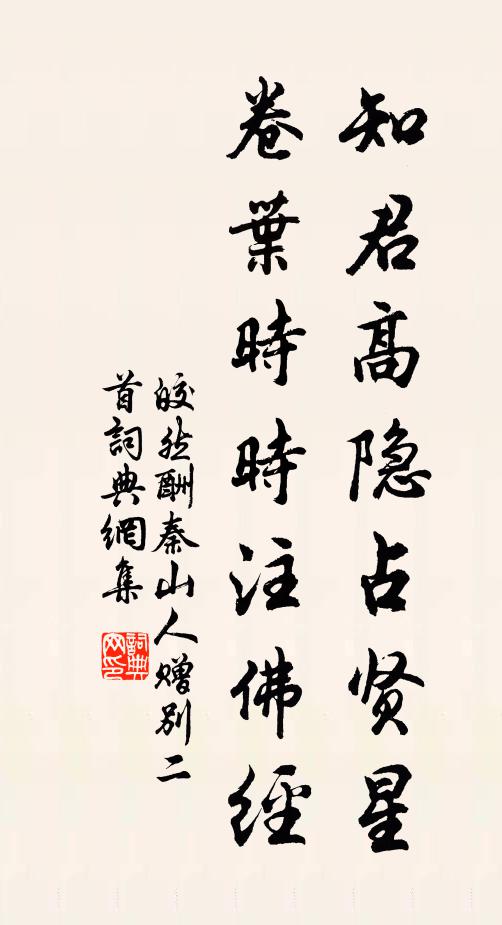 知君高隐占贤星
卷葉時時注佛經
皎然酬秦山人赠别二
首詞典網集
詞典網印